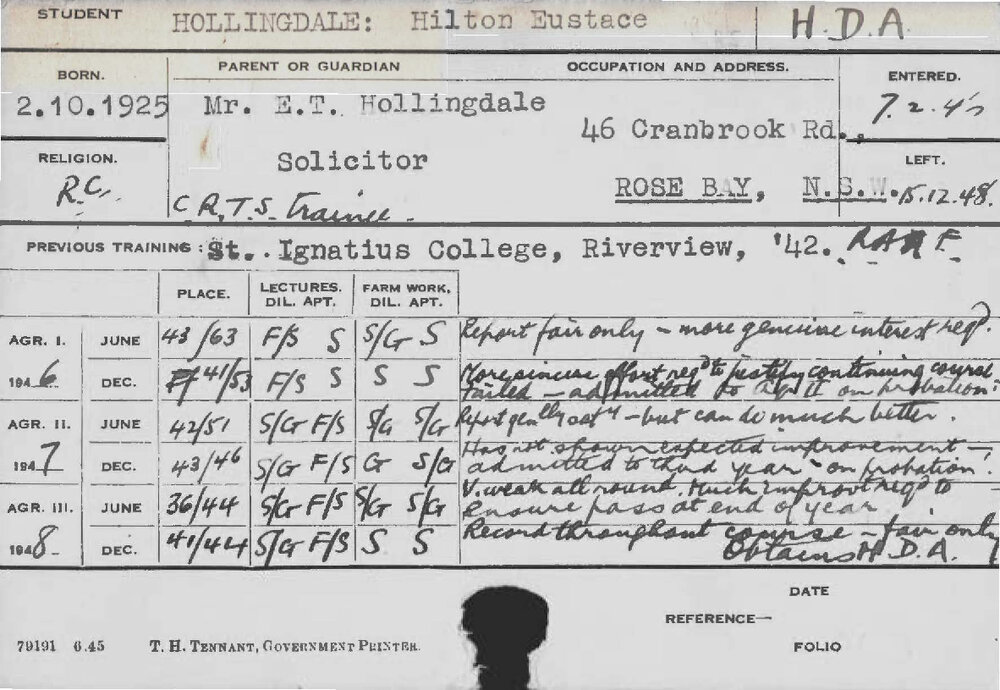 STUDENT HOLLINGDALE: Hilton Eustace H.D.A.
BORN. PARENT OR GUARDIAN OCCUPATION AND ADDRESS. ENTERED.
2.10.1925 Mr. E.T. Hollingdale 7.2.4
46 Cranbrook Rd.,
RELIGION. Solicitor LEFT.
R.C. ROSE BAY, N.S.W. 15.12.48.
C.R.T.S. Trainee.
PREVIOUS TRAINING: St. Ignatius College, Riverview, '42. RAAF.
PLACE. LECTURES. DIL. APT. FARM WORK. DIL. APT.
AGR. I. JUNE 43/63 F/S S S/G S Report fair only – more genuine interest reqd.
1946 DEC. F 41/53 F/S S S S More sincere effort reqd to justify continuing course.
Failed – admitted to Agr II on probation.
AGR. II. JUNE 42/51 S/G F/S S/G S/G Report genlly saty – but can do much better.
1947 DEC. 43/46 S/G F/S G S/G Has not shown expected improvement –
admitted to third year on probation.
AGR. III. JUNE 36/44 S/G F/S S/G S/G V. weak all round. Much improvt reqd to
ensure pass at end of year
1948 DEC. 41/44 S/G F/S S S Record throughout course – fair only
Obtains H.D.A.
DATE
REFERENCE—
79191 6.45 T. H. TENNANT, GOVERNMENT PRINTER. FOLIO